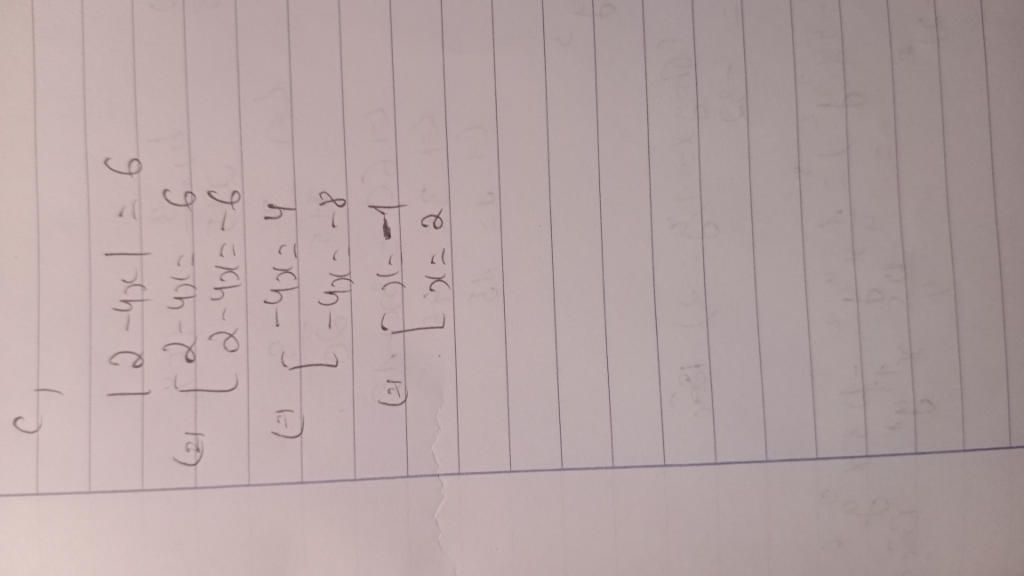 c,
|2-4x| = 6
(=) [ 2-4x = 6
[ 2-4x = -6
(=) [ -4x = 4
[ -4x = -8
(=) [ x = -1
[ x = 2